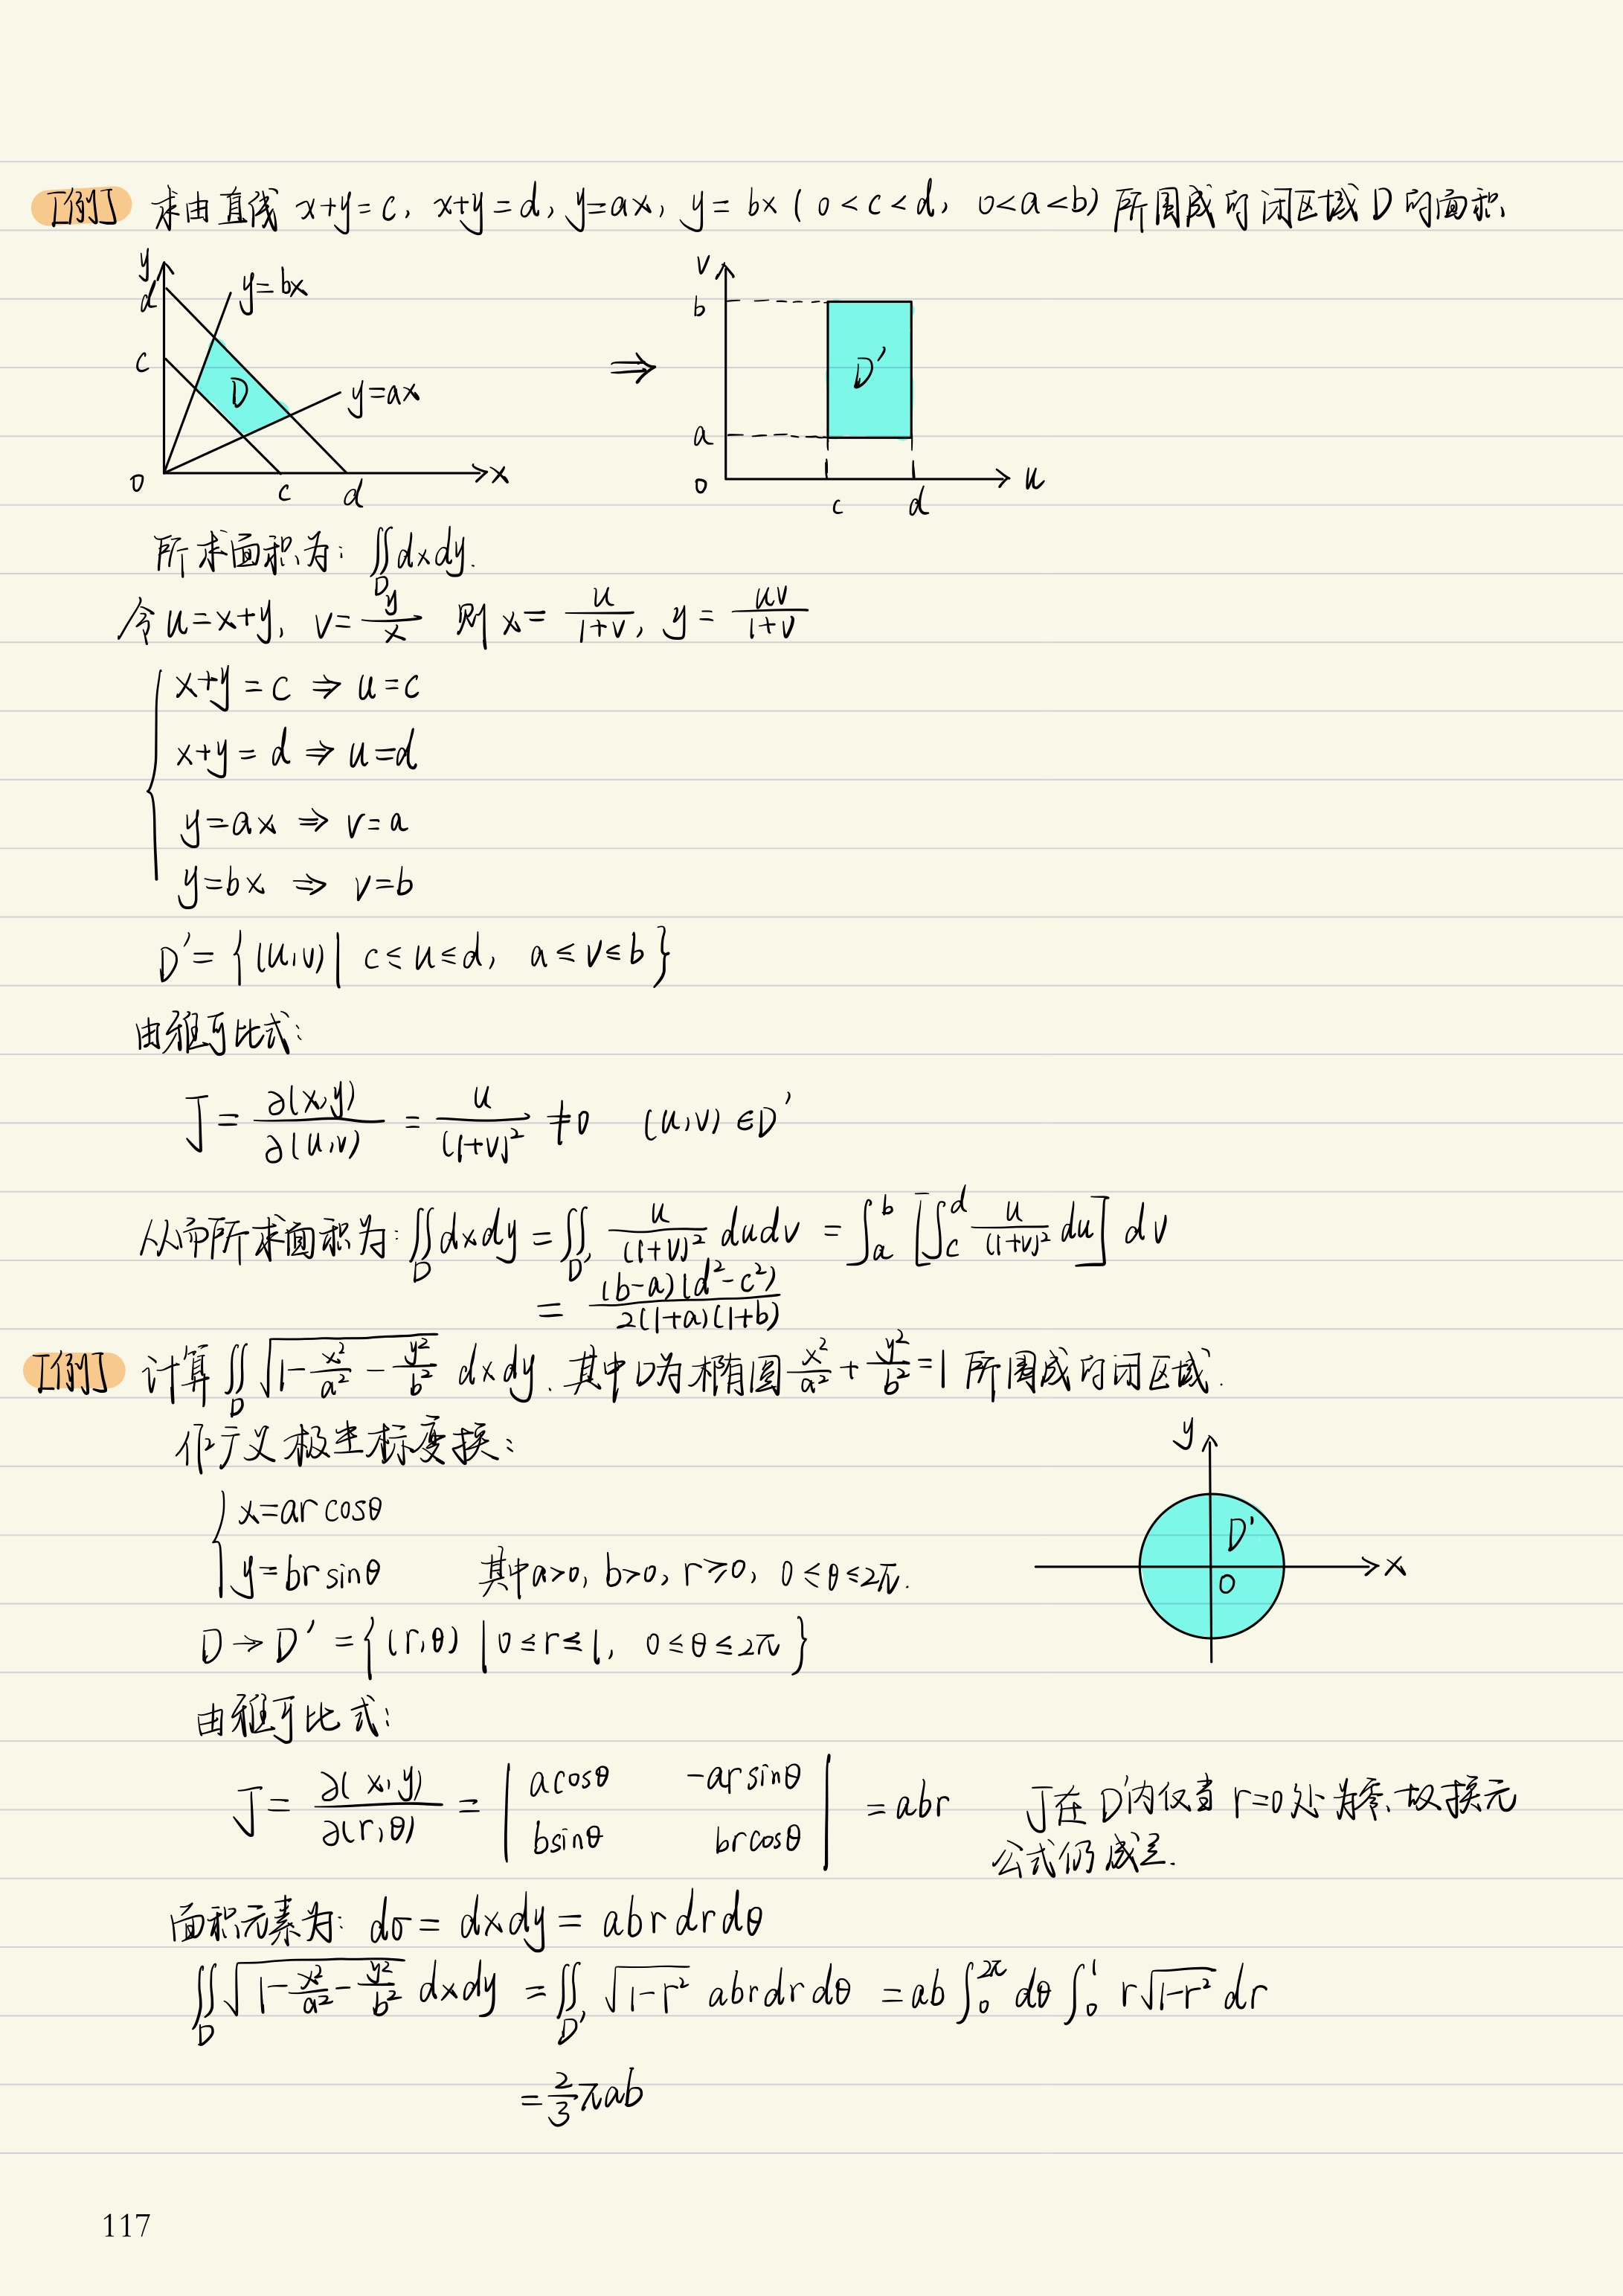 [例] 求由直线 x+y=c, x+y=d, y=ax, y=bx (0<c<d, 0<a<b) 所围成的闭区域 D 的面积.
y
d
c
y=bx
D
y=ax
O
c
d
x
⇒
v
b
a
D'
o
c
d
u
所求面积为: ∬_D dxdy.
令 u=x+y, v=y/x 则 x=u/(1+v), y=uv/(1+v)
x+y=c ⇒ u=c
x+y=d ⇒ u=d
y=ax ⇒ v=a
y=bx ⇒ v=b
D'={(u,v)| c≤u≤d, a≤v≤b}
由雅可比式:
J=∂(x,y)/∂(u,v)=u/(1+v)²≠0 (u,v)∈D'
从而所求面积为: ∬_D dxdy=∬_D' u/(1+v)² dudv=∫_a^b [∫_c^d u/(1+v)² du] dv
=(b-a)(d²-c²)/2(1+a)(1+b)
[例] 计算∬_D √(1-x²/a²-y²/b²) dxdy. 其中D为椭圆 x²/a²+y²/b²=1 所围成的闭区域.
作广义极坐标变换:
x=arcosθ
y=brsinθ 其中a>0, b>0, r≥0, 0≤θ≤2π.
y
D'
O
x
D→D'={(r,θ)|0≤r≤1, 0≤θ≤2π}
由雅可比式:
J=∂(x,y)/∂(r,θ)=|acosθ -arsinθ
bsinθ brcosθ|=abr J在D'内仅当r=0处为零,故换元
公式仍成立.
面积元素为: dσ=dxdy=abrdrdθ
∬_D √(1-x²/a²-y²/b²) dxdy=∬_D' √(1-r²) abrdrdθ=ab∫_0^2π dθ∫_0^1 r√(1-r²) dr
=2/3 πab
117